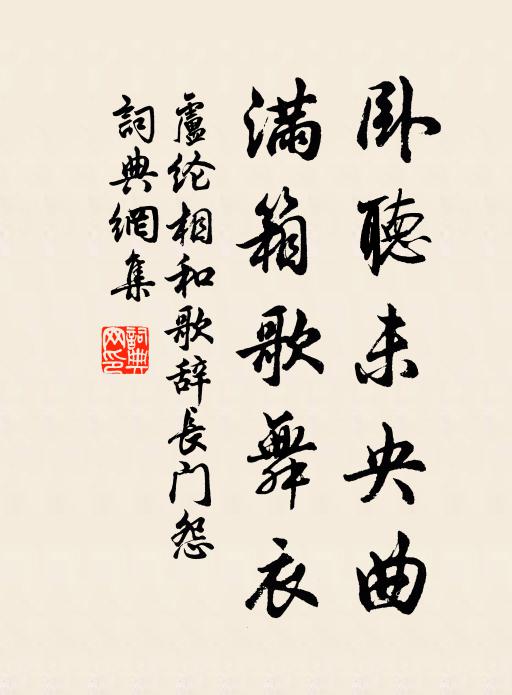 卧聽未央曲
滿箱歌舞衣
盧纶相和歌辞長门怨
詞典網集
詞典网印